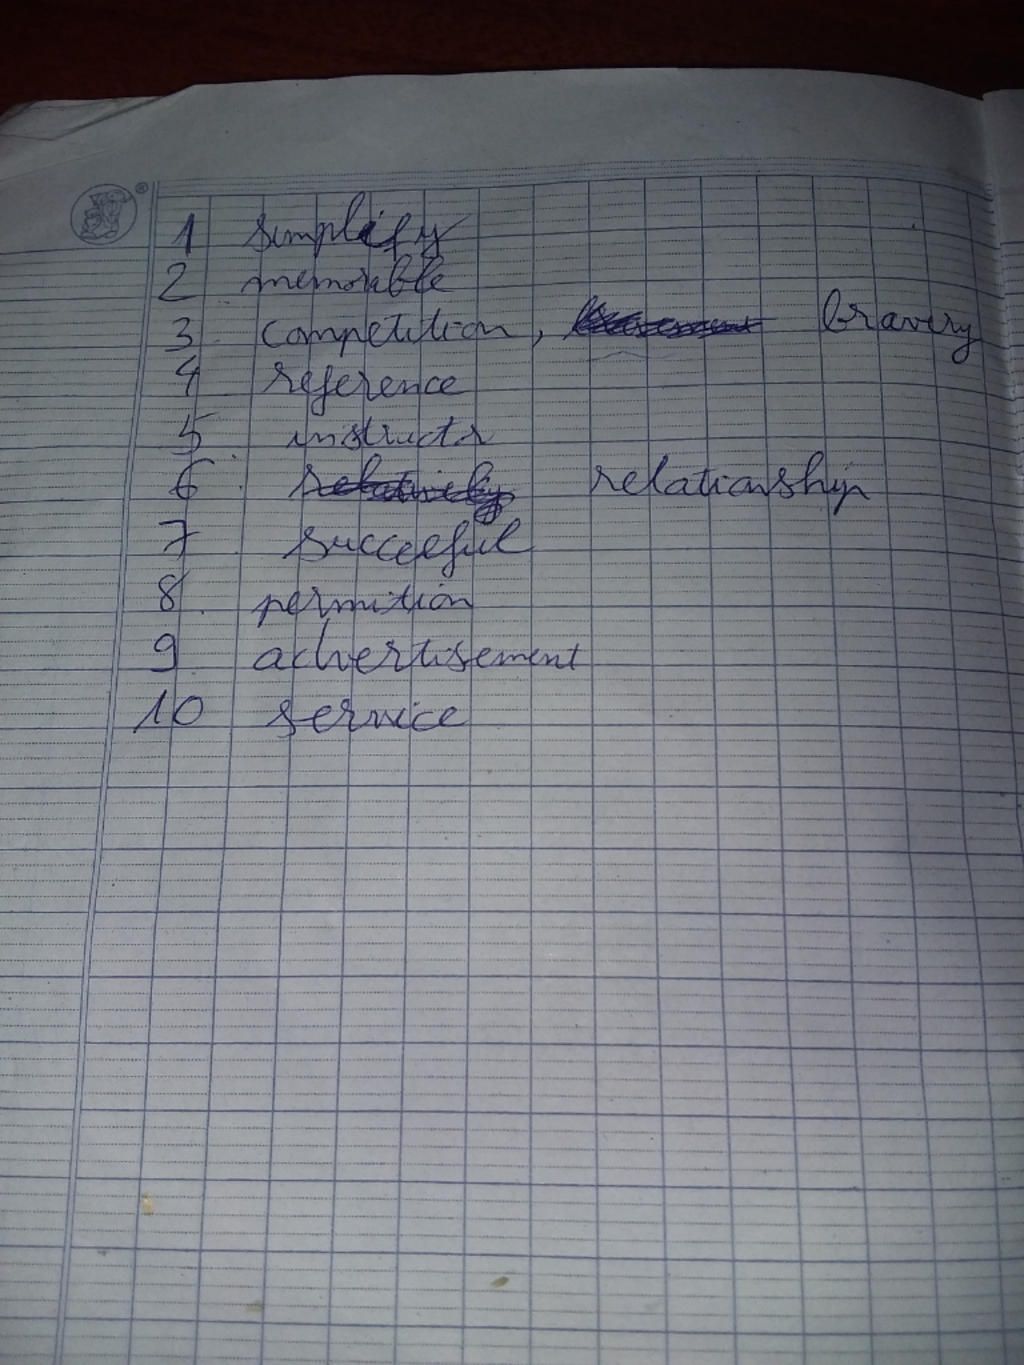 1 simplify
2 memorable
3 competition, bravery
4 reference
5 instructor
6 relationship
7 succeeful
8 permition
9 advertisement
10 service